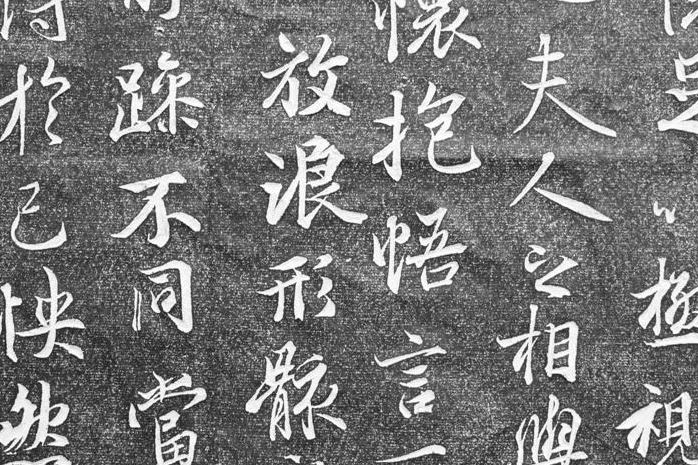 足以極視
夫人之相與
懷抱悟言一
放浪形骸
躁不同當
得於己快然